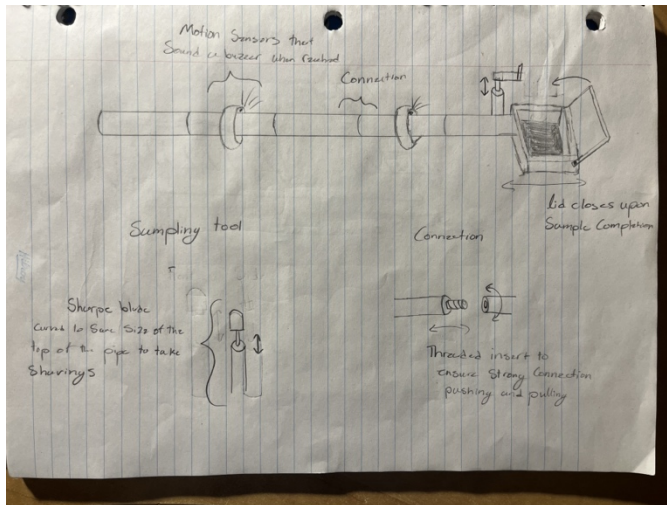 Motion Sensors that
Sound a buzzer when reached
Connection
lid closes upon
Sample Completion
Sampling tool
Connection
Sharpe blade
curved to Same Size of the
top of the pipe to take
Shavings
Threaded insert to
ensure Strong Connection
pushing and pulling